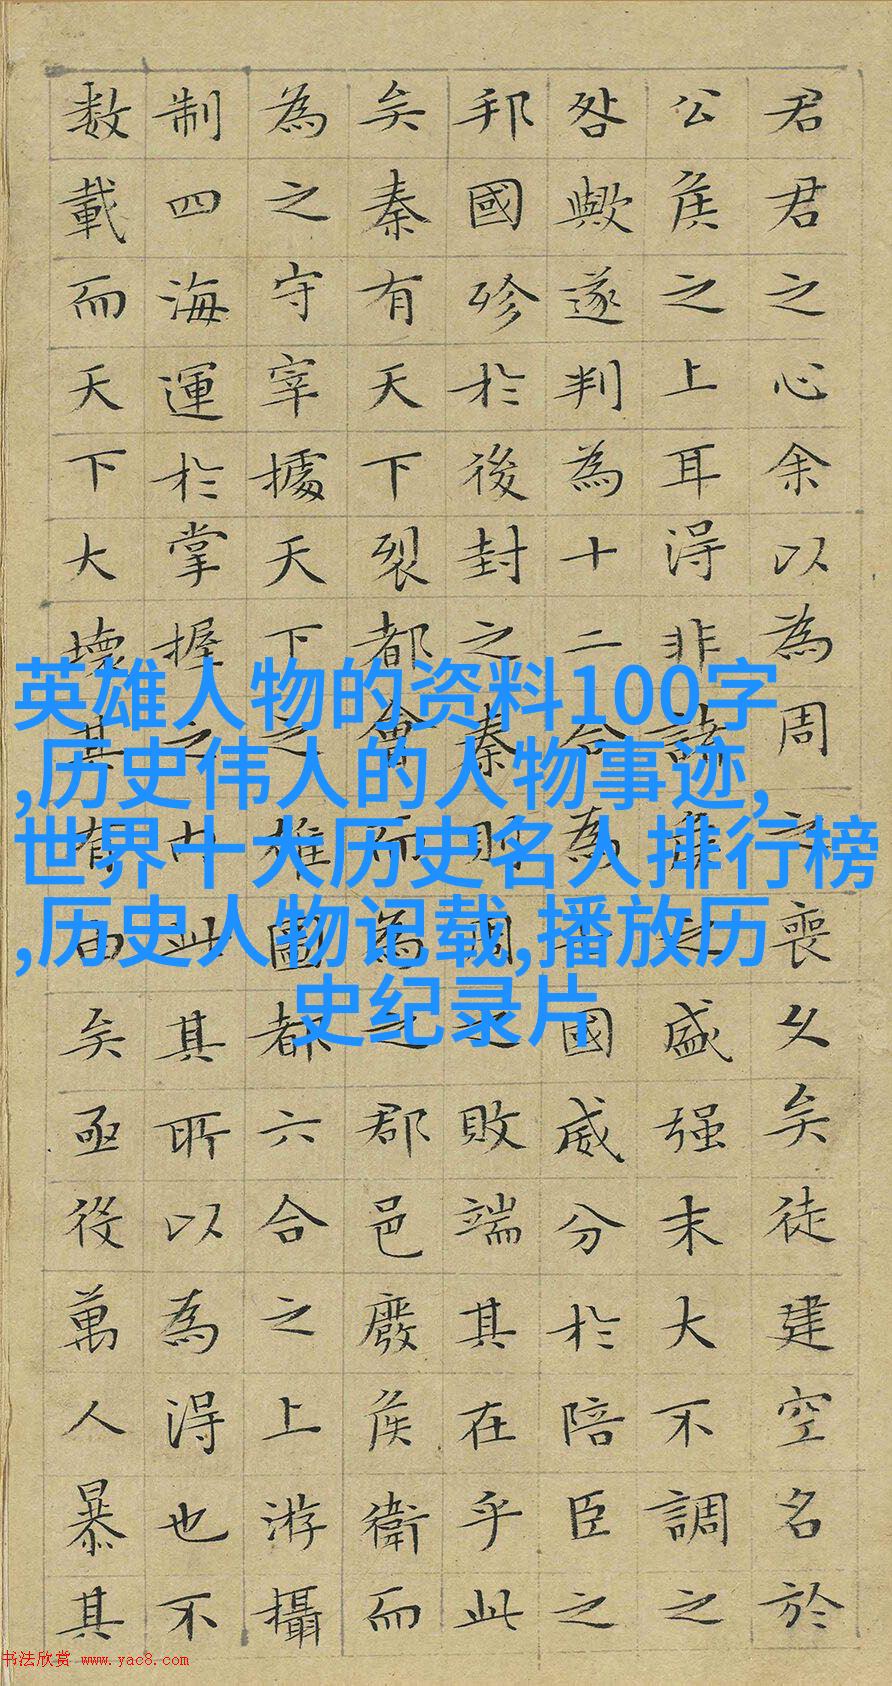 君君之心余以為周之喪久矣徒建空名於
公侯之上耳得非諸侯之盛强末大不調之
咎歟遂判為十二合為七國威分於陪臣之
邦國殄於後封之秦則周之敗端其在乎此
矣秦有天下裂都會而為之郡邑廢侯衛而
為之守宰據天下之雄圖都六合之上游攝
制四海運於掌握之內此其所以為得也不
数載而天下大壞其有由矣亟役萬人暴其
英雄人物的资料100字
,历史伟人的人物事迹,
世界十大历史名人排行榜
,历史人物记载,播放历
史纪录片
书法欣赏 www.yac8.com